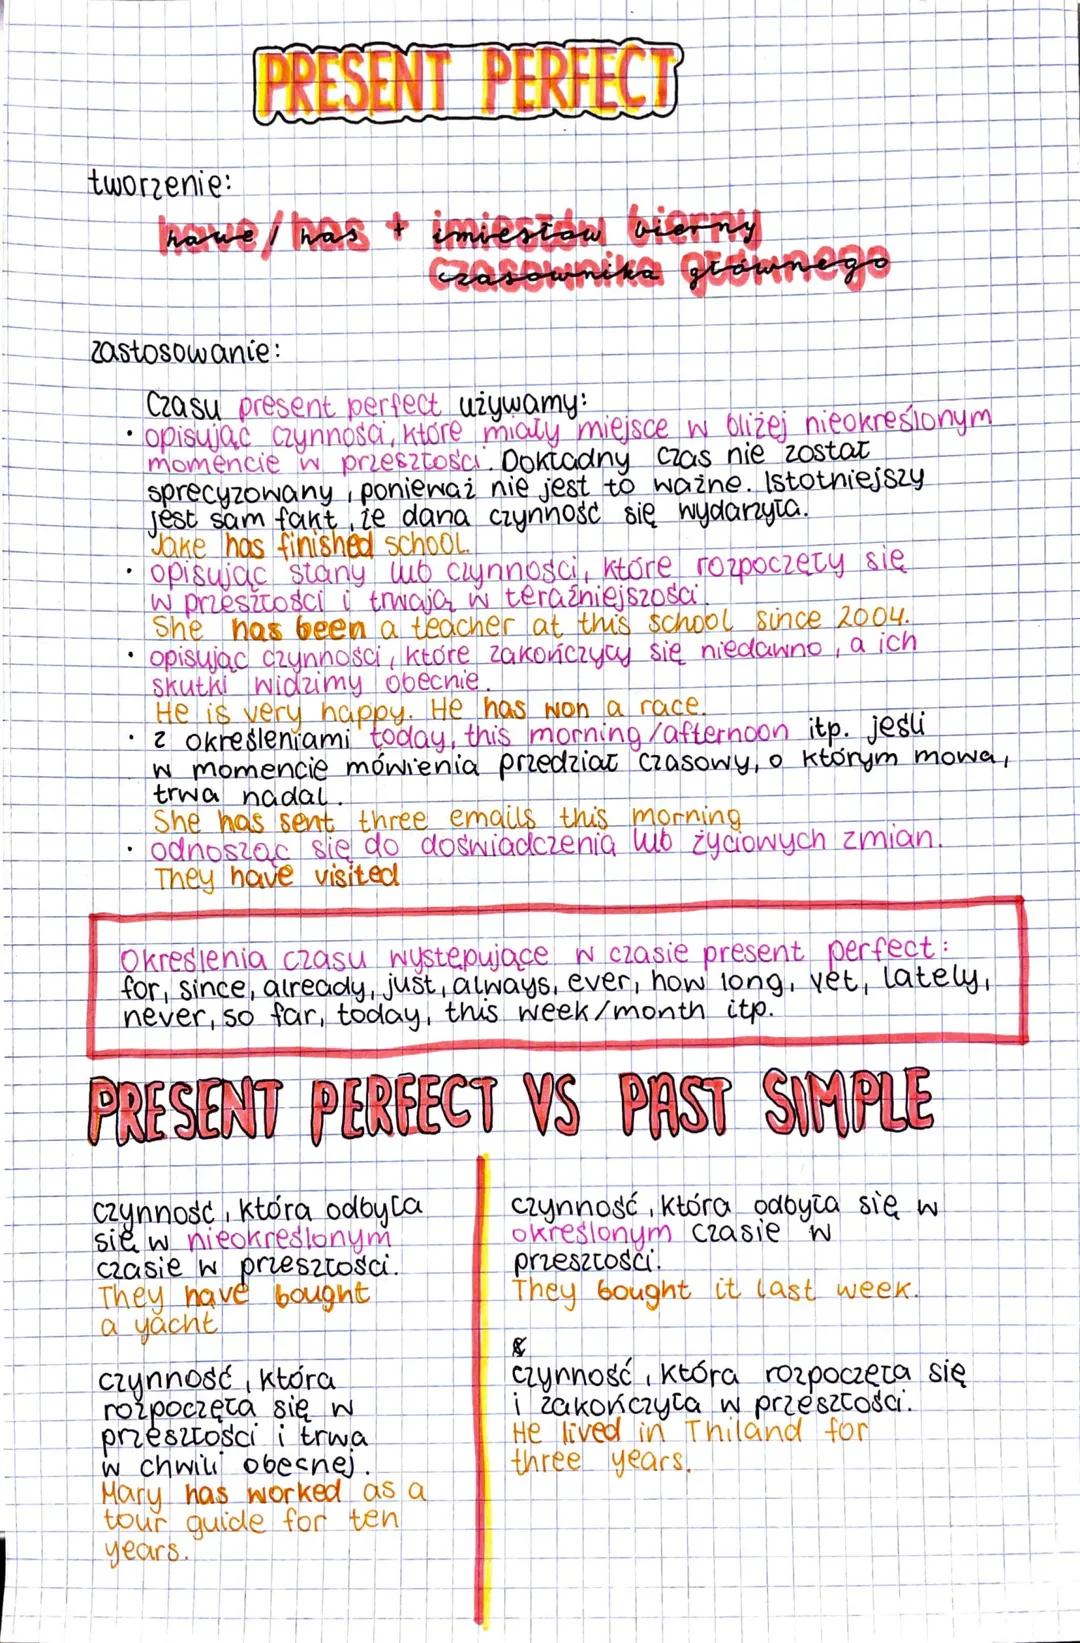 PRESENT PERFECT
tworzenie:
have / has + imiesłów bierny
czasownika głównego
zastosowanie:
Czasu present perfect używamy:
• opisując czynności, które miały miejsce w bliżej nieokreślonym
momencie w przeszłości. Dokładny czas nie został
sprecyzowany, ponieważ nie jest to ważne. Istotniejszy
jest sam fakt, że dana czynność się wydarzyła.
Jake has finished school.
• opisując stany lub czynności, które rozpoczęły się
w przeszłości i trwają w teraźniejszości.
She has been a teacher at this school since 2004.
• opisując czynności, które zakończyły się niedawno, a ich
skutki widzimy obecnie.
He is very happy. He has won a race.
• z określeniami today, this morning/afternoon itp. jeśli
w momencie mówienia przedział czasowy, o którym mowa,
trwa nadal.
She has sent three emails this morning
• odnosząc się do doświadczenia lub życiowych zmian.
They have visited
Określenia czasu występujące w czasie present perfect:
for, since, already, just, always, ever, how long, yet, lately,
never, so far, today, this week/month itp.
PRESENT PERFECT VS PAST SIMPLE
czynność, która odbyła
się w nieokreślonym
czasie w przeszłości.
They have bought
a yacht
czynność, która
rozpoczęła się w
przeszłości i trwa
w chwili obecnej.
Mary has worked as a
tour guide for ten
years.
czynność, która odbyła się w
określonym czasie w
przeszłości.
They bought it last week.
czynność, która rozpoczęła się
i zakończyła w przeszłości.
He lived in Thiland for
three years.